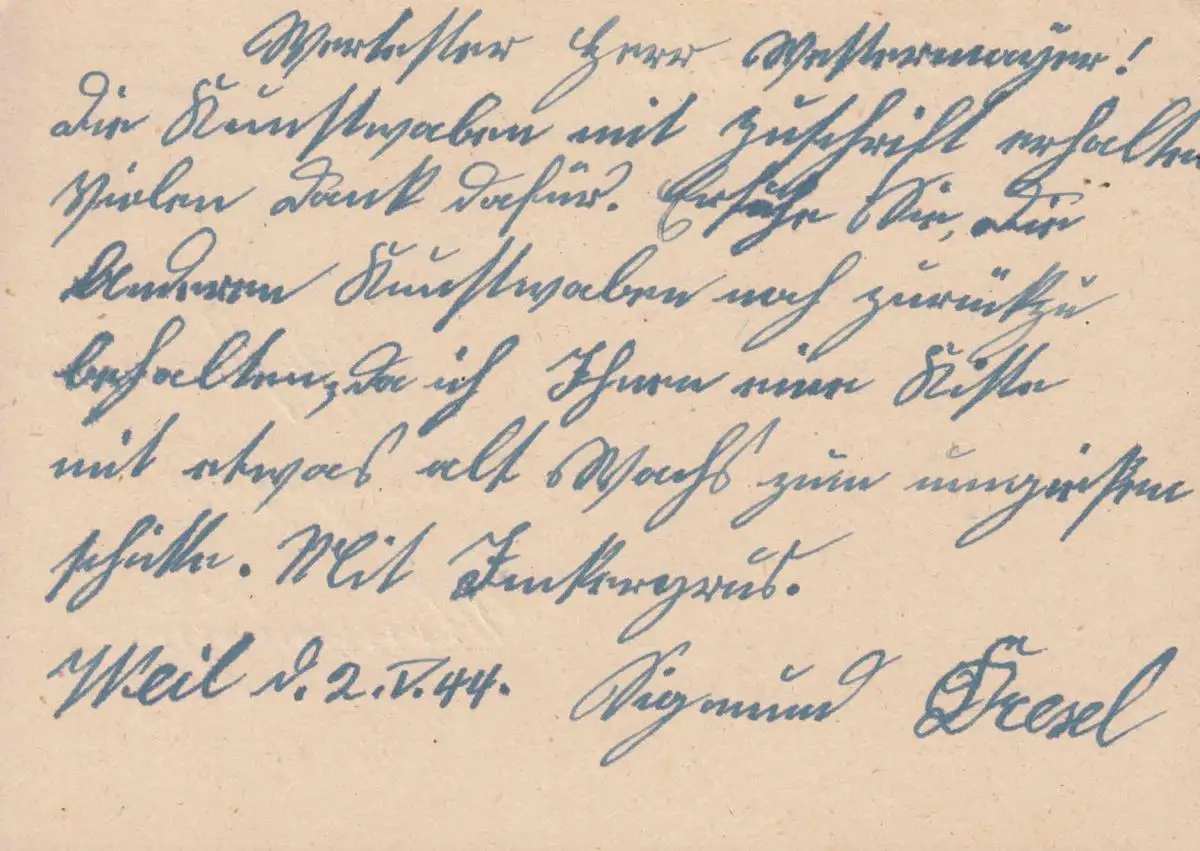 Wertester Herr Westermayer!
Die Kunstwaben mit Zuschrift erhalten
Vielen Dank dafür. Ersuche Sie, die
Anderen Kunstwaben noch zurückzu
behalten, da ich Ihnen eine Kiste
mit etwas alt Wachs zum umgießen
schicke. Mit Imkergrus.
Weil d. 2.V.44. Sigmund